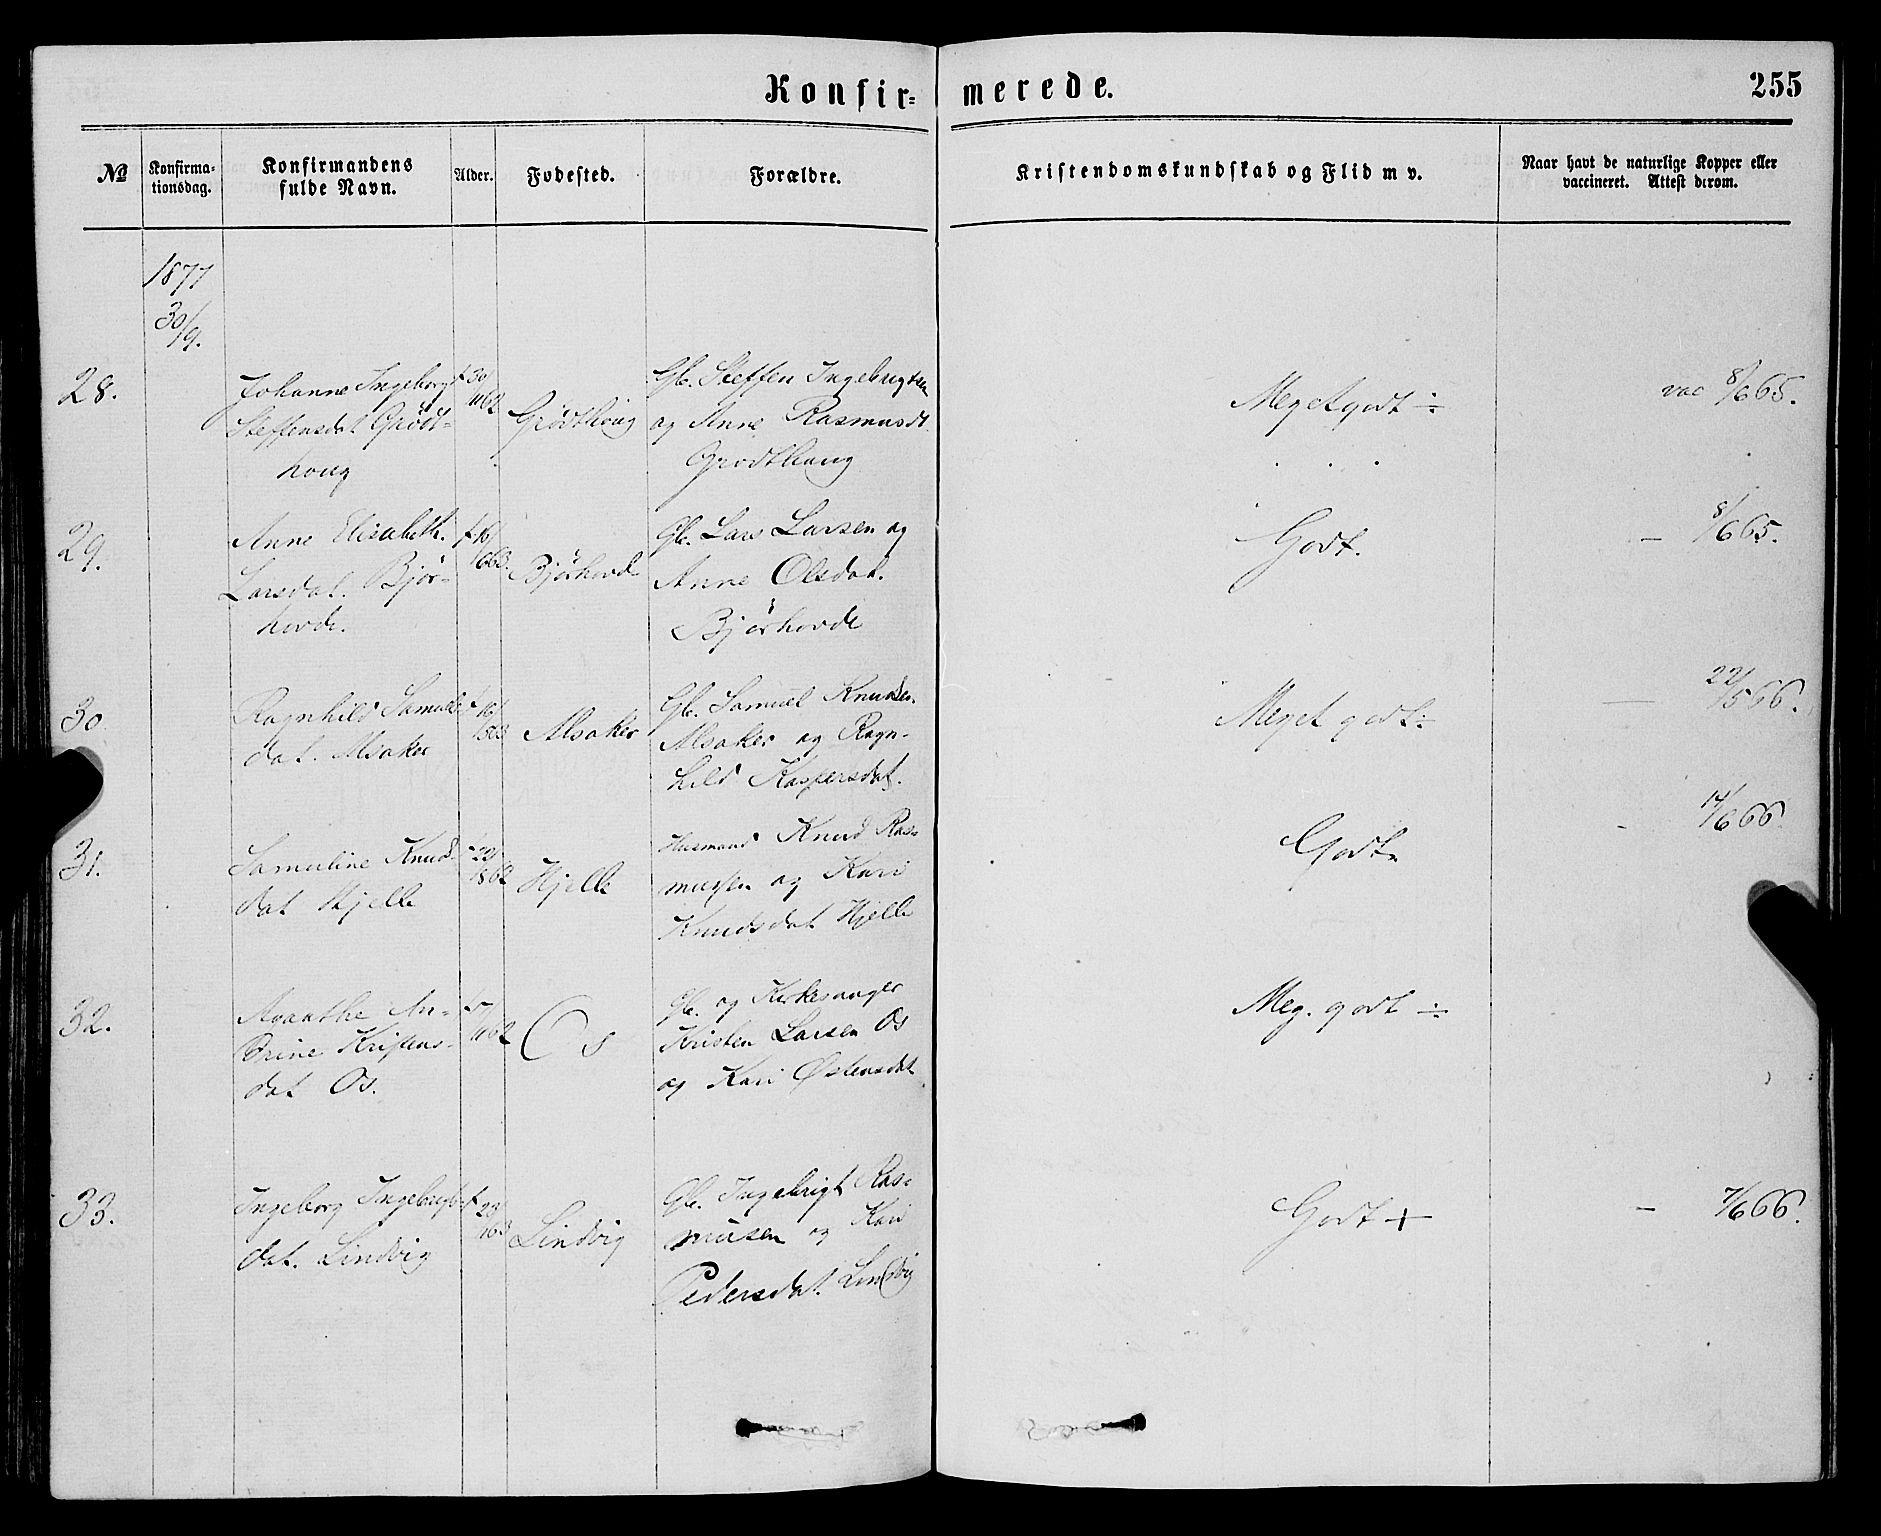 Konfir- merede.
255
№
Konfirma-
tionsdag.
Konfirmandens
fulde Navn.
Alder.
Fødested.
Forældre.
Kristendomskundskab og Flid m v.
Naar havt de naturlige Kopper eller
vaccineret. Attest derom.
1877
30/9.
28.
Johanne Ingeborg
Steffensdat Grödt-
houg
f 30/11 62
Grödthoug
Gb. Steffen Ingebrigtsen
og Anne Rasmusdt.
Grodthaug
Meget godt ÷
vac 8/6 65.
29.
Anne Elisabeth.
Larsdat. Bjør-
hovde.
Bjørhovd
Gb. Lars Larsen og
Anne Olsdat.
Bjørhovde
Godt.
- 8/6 65.
30
Ragnhild Samuels
dat. Alsaker
Alsaker
Gb. Samuel Knudsen
Alsaker og Ragn-
hild Kaspersdat.
Meget godt ÷
— 22/5 66.
31.
Samuline Knuds
dat Hjelle
Hjelle
Husmand Knud Ras-
mussen og Kari
Knudsdat Hjelle
Godt
- 14/6 66
32.
Aganthe An-
drine Kristens-
dat Os.
Os
Gb. og Kirkesanger
Kristen Larsen Os
og Kari Østensdat
Meg. godt ÷
33.
Ingeborg Ingebrigts
dat. Lindvig
Lindvig
Gb. Ingebrigt Ras-
musen og Kari
Pedersdat. Lindvig
Godt +
- 7/6 66.